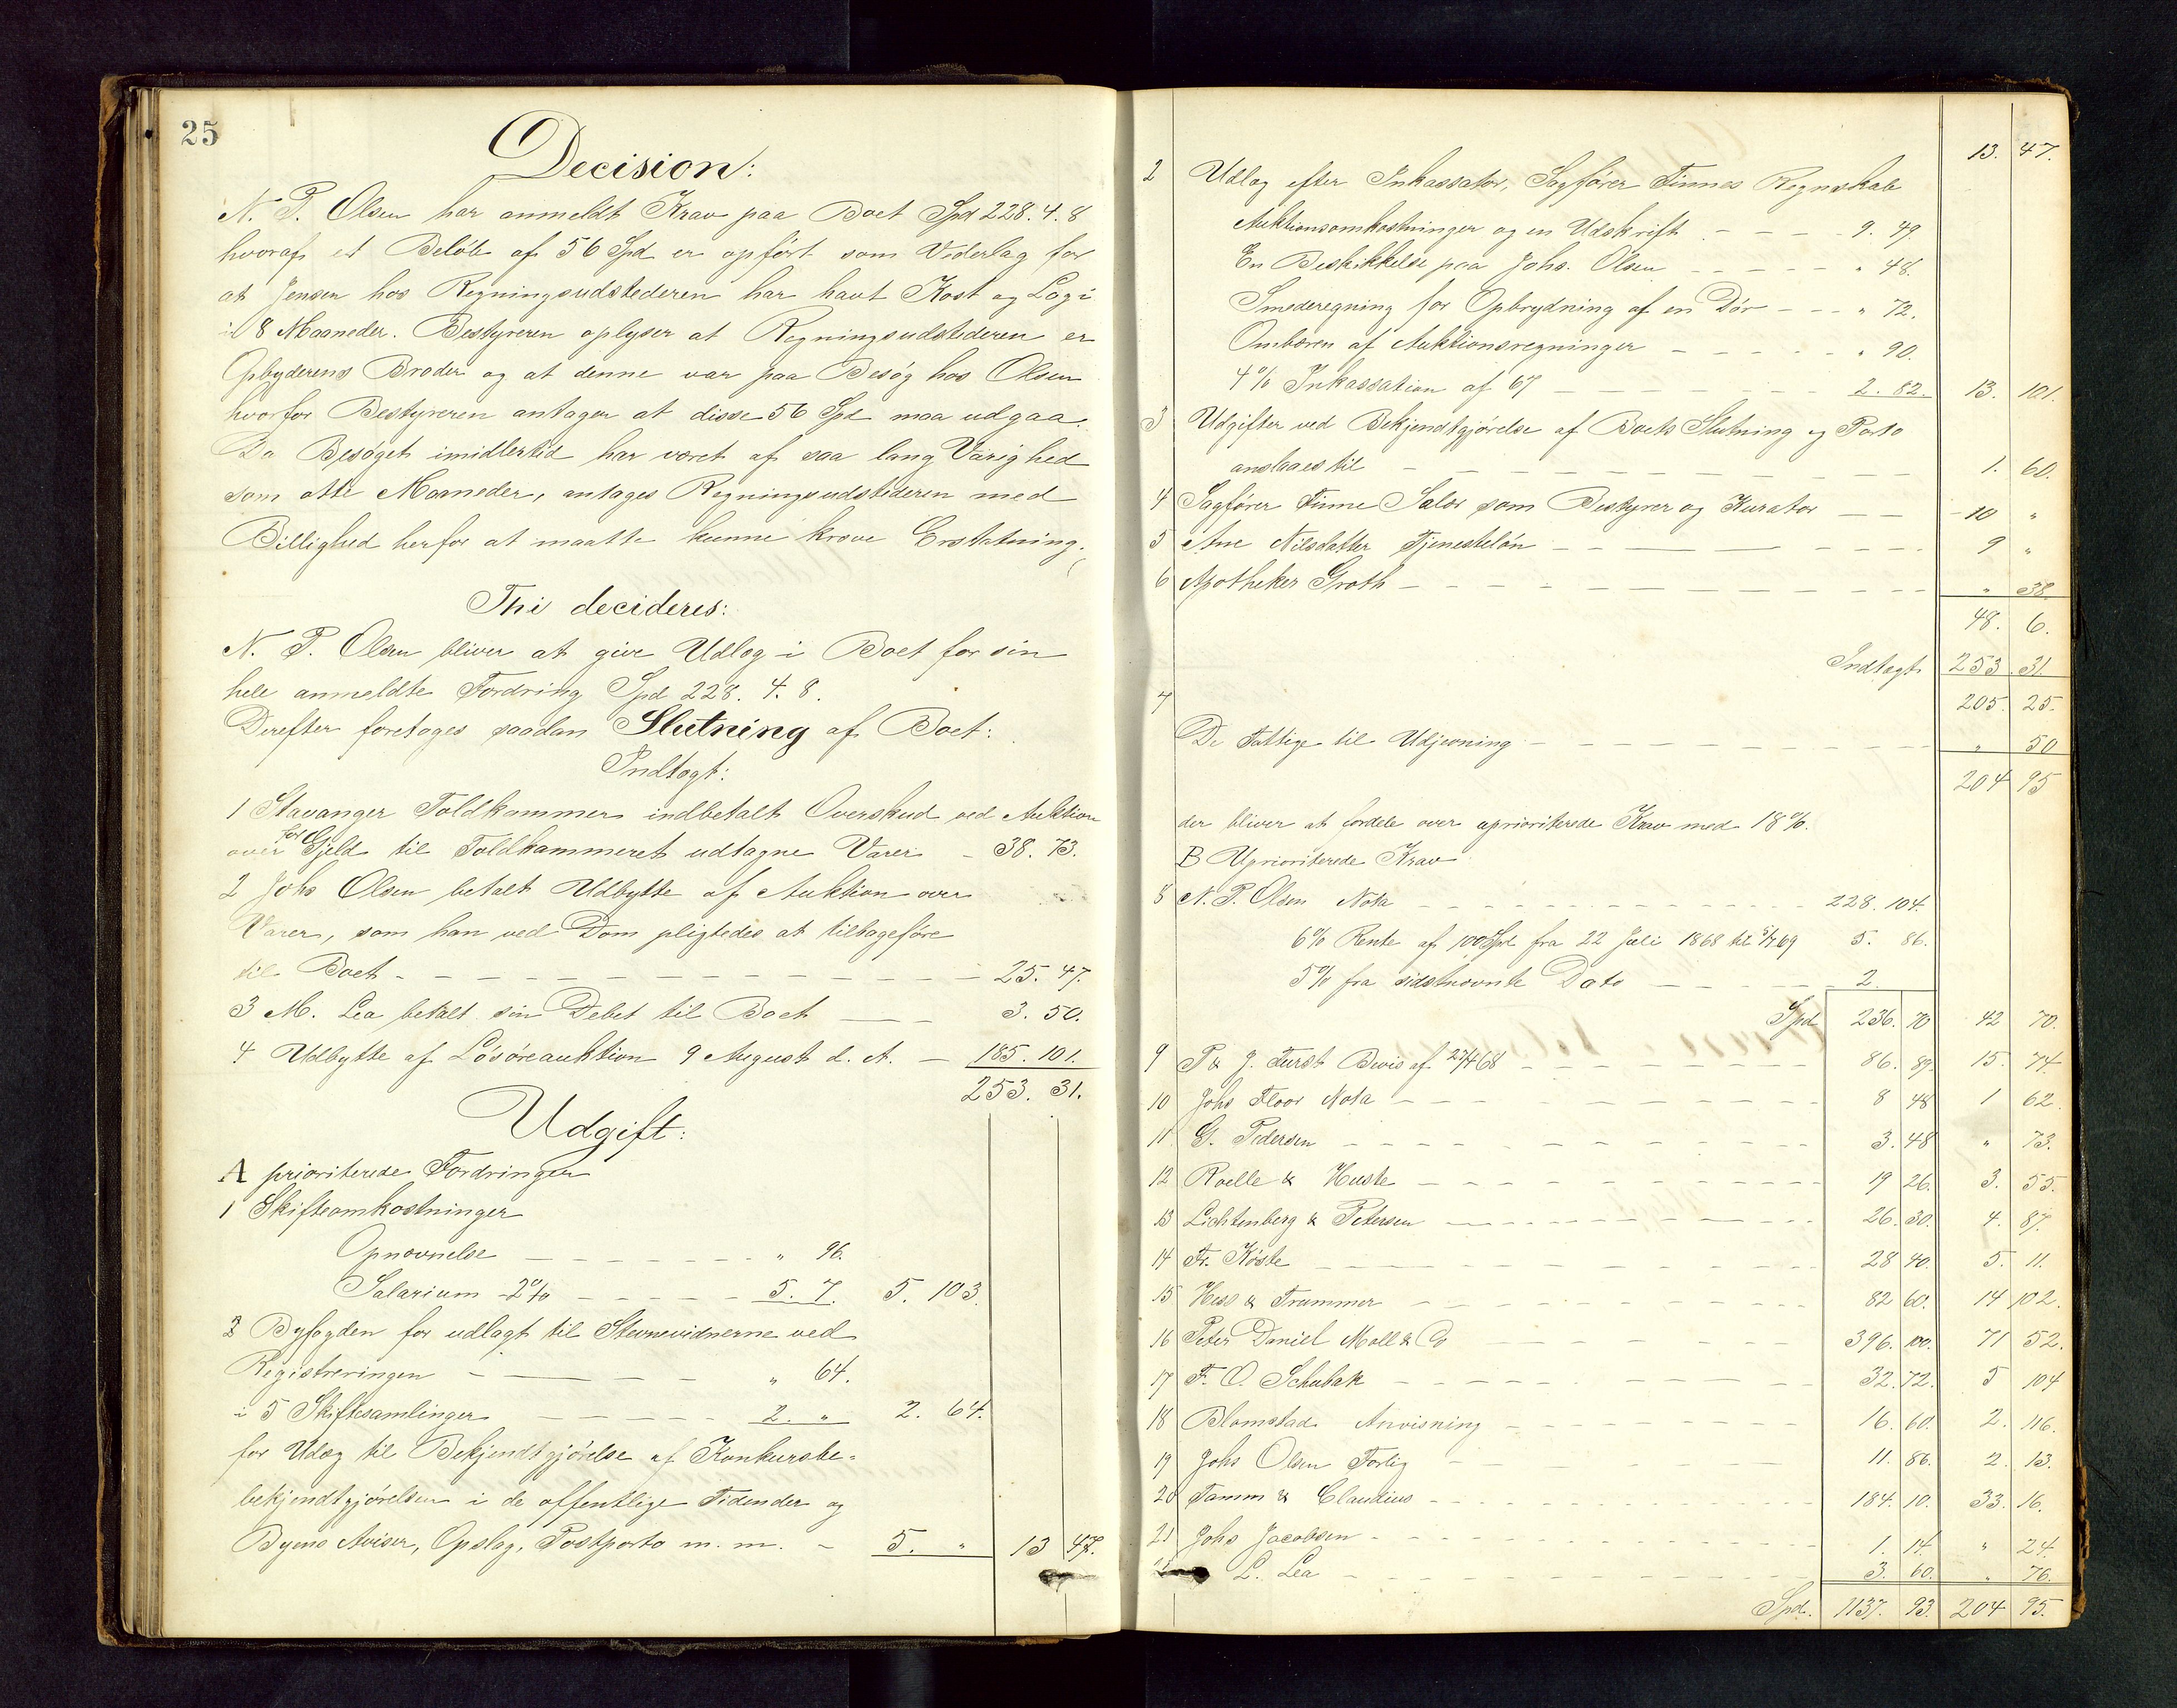 25
Decision:
N. P. Olsen har anmeldt Krav paa Boet Spd 228. 4. 8
hvoraf et Beløb af 56 Spd er opført som Vederlag for
at Jensen hos Regningsudstederen har havt Kost og Logi
i 8 Maaneder. Bestyreren oplyser at Regningsudstederen er
Opbyderens Broder og at denne var paa Besøg hos Olsen
hvorfor Bestyreren antager at disse 56 Spd maa udgaa.
Da Besøget imidlertid har været af saa lang Varighed
som otte Maaneder, antages Regningsudstederen med
Billighed herfor at maatte kunne kræve Erstatning.
Thi decideres:
N. P. Olsen bliver at give Udlæg i Boet for sin
hele anmeldte Fordring Spd 228. 4. 8.
Derefter foretages saadan Slutning af Boet:
Indtægt:
1 Stavanger Toldkammer indbetalt Overskud ved Auktion
over for Gjeld til Toldkammeret udtagne Varer – 38. 73.
2 Johs Olsen betalt Udbytte af Auktion over
Varer, som han ved Dom pligtedes at tilbageføre
til Boet – – – 25. 47.
3 M. Lea betalt sin Debet til Boet – – 3. 50.
4 Udbytte af Løsøreauktion 9 August d. A. – 185. 101.
253. 31.
Udgift:
A prioriterede Fordringer
1 Skifteomkostninger
Opnævnelse – – – " 96.
Salarium 2% – – – 5. 7. 5. 103.
2 Byfogden for udlagt til Stevnevidnerne ved
Registreringen – – – " 64.
i 5 Skiftesamlinger – – – 2. " 2. 64.
for Udlæg til Bekjendtgjørelse af Konkursbe-
bekjendtgjørelsen i de offentlige Tidender og
Byens Aviser, Opslag, Postporto m. m. – 5. " 13 47.
13. 47.
2 Udlæg efter Inkassator, Sagfører Finnes Regnskab
Auktionsomkostninger og en Udskrift – – – 9. 49.
En Beskikkelse paa Johs. Olsen – – – " 48.
Smederegning for Opbrydning af en Dør – – – " 72.
Ombæren af Auktionsregninger – – – " 90.
4% Inkassation af 67 – – – 2. 82. 13. 101.
3 Udgifter ved Bekjendtgjørelse af Boets Slutning og Porto
anslaaes til – – – 1. 60.
4 Sagfører Finne Salær som Bestyrer og Kurator – – 10 "
5 Ane Nilsdatter Tjenesteløn – – – 9 "
6 Apotheker Groth – – – " 38.
48. 6.
Indtægt 253. 31.
7 205. 25.
De Fattige til Udjevning – – – " 50
204 95
der bliver at fordele over uprioriterede Krav med 18%.
B Uprioriterede Krav
8 N. P. Olsen Nota – – – 228. 104.
6% Rente af 100 Spd fra 22 Juli 1868 til 69 5. 86.
5% fra sidstnævnte Dato – – – 2.
Spd 236. 70 42 70.
9 P & J. Furst Bevis af 68 – – – 86. 89. 15. 74.
10 Johs Floor Nota – – – 8 48 1 62.
11 G. Pedersen – – – 3. 48 " 73.
12 Roelle & Huste – – – 19 26. 3. 55.
13 Lichtenberg & Petersen – – – 26. 30. 4. 87.
14 Fr. Köste – – – 28 40. 5. 11.
15 Hess & Trummer – – – 82 60. 14 102.
16 Peter Daniel Moll & Co – – – 396. 100. 71 52.
17 F. O. Schubak – – – 32. 72. 5 104
18 Blomstad Anvisning – – – 16. 60. 2. 116.
19 Johs Olsen Forlig – – – 11. 86. 2. 13.
20 Tamm & Claudius – – – 184. 10. 33. 16.
21 Johs Jacobsen – – – 1. 14. " 24.
L. Lea – – – 3. 60. " 76.
Spd. 1137. 93. 204 95.